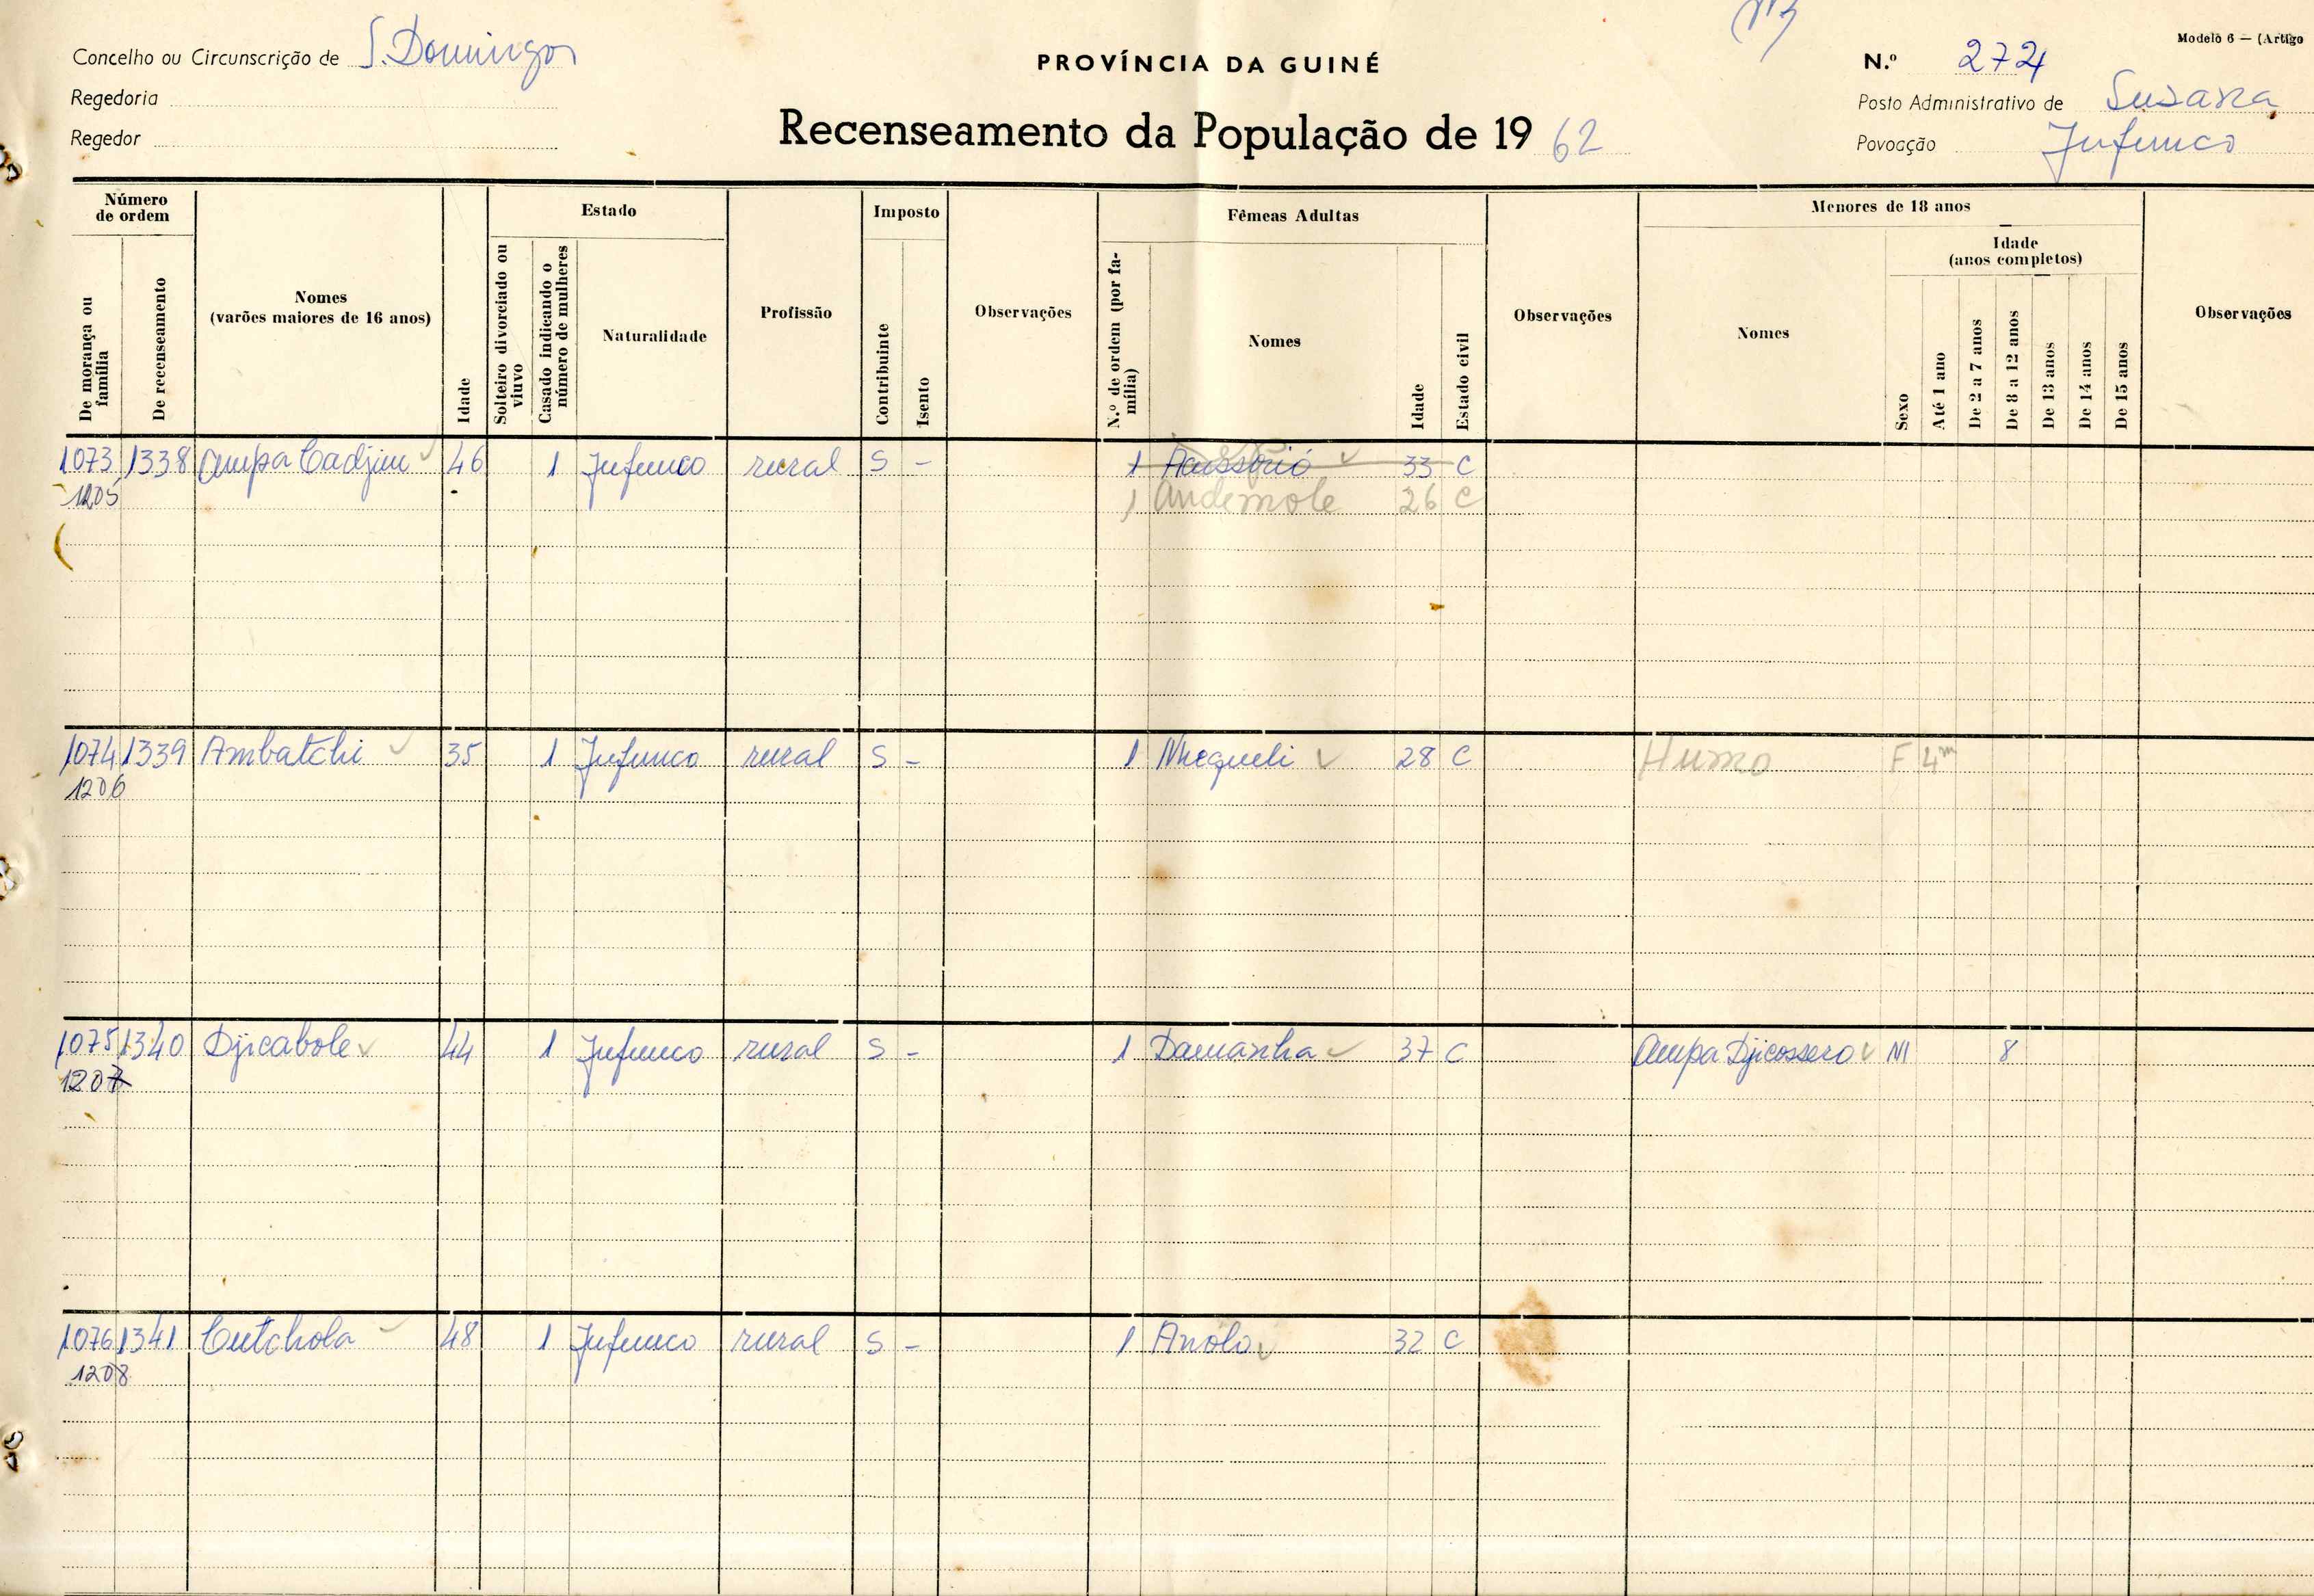 Modelo 6 — (Artigo
Concelho ou Circunscrição de S. Domingos
PROVÍNCIA DA GUINÉ
N.º 274
Regedoria
Posto Administrativo de Susana
Regedor
Recenseamento da População de 1962
Povoação Jufunco
Número de ordem
De morança ou família
De recenseamento
Nomes
(varões maiores de 16 anos)
Idade
Estado
Solteiro divorciado ou viuvo
Casado indicando o número de mulheres
Naturalidade
Profissão
Imposto
Contribuinte
Isento
Observações
Fêmeas Adultas
N.º de ordem (por família)
Nomes
Idade
Estado civil
Observações
Menores de 18 anos
Nomes
Idade
(anos completos)
Sexo
Até 1 ano
De 2 a 7 anos
De 8 a 12 anos
De 13 anos
De 14 anos
De 15 anos
Observações
1073 1338 Ampa Cadjim 46 1 Jufunco rural S - 1 33 C
1205 1 Andemole 26 C
1074 1339 Ambatchi 35 1 Jufunco rural S - 1 Nhequeli 28 C Humo F 4m
1206
1075 1340 Djicabole 44 1 Jufunco rural S - 1 Damanha 37 C Ampa Djicossero M 8
1207
1076 1341 Cutchola 48 1 Jufunco rural S - 1 Anolo 32 C
1208